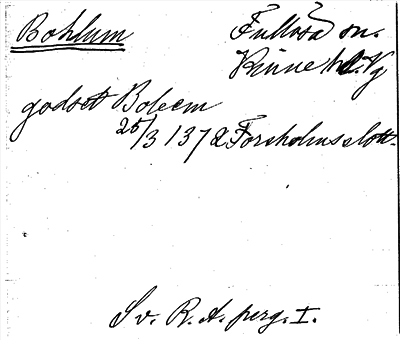 Bohlum
Fullösa sn.
Kinne hd. Vg
godset Boleem
25/3 1372 Forsholms slott.
Sv. R. A. perg. I.